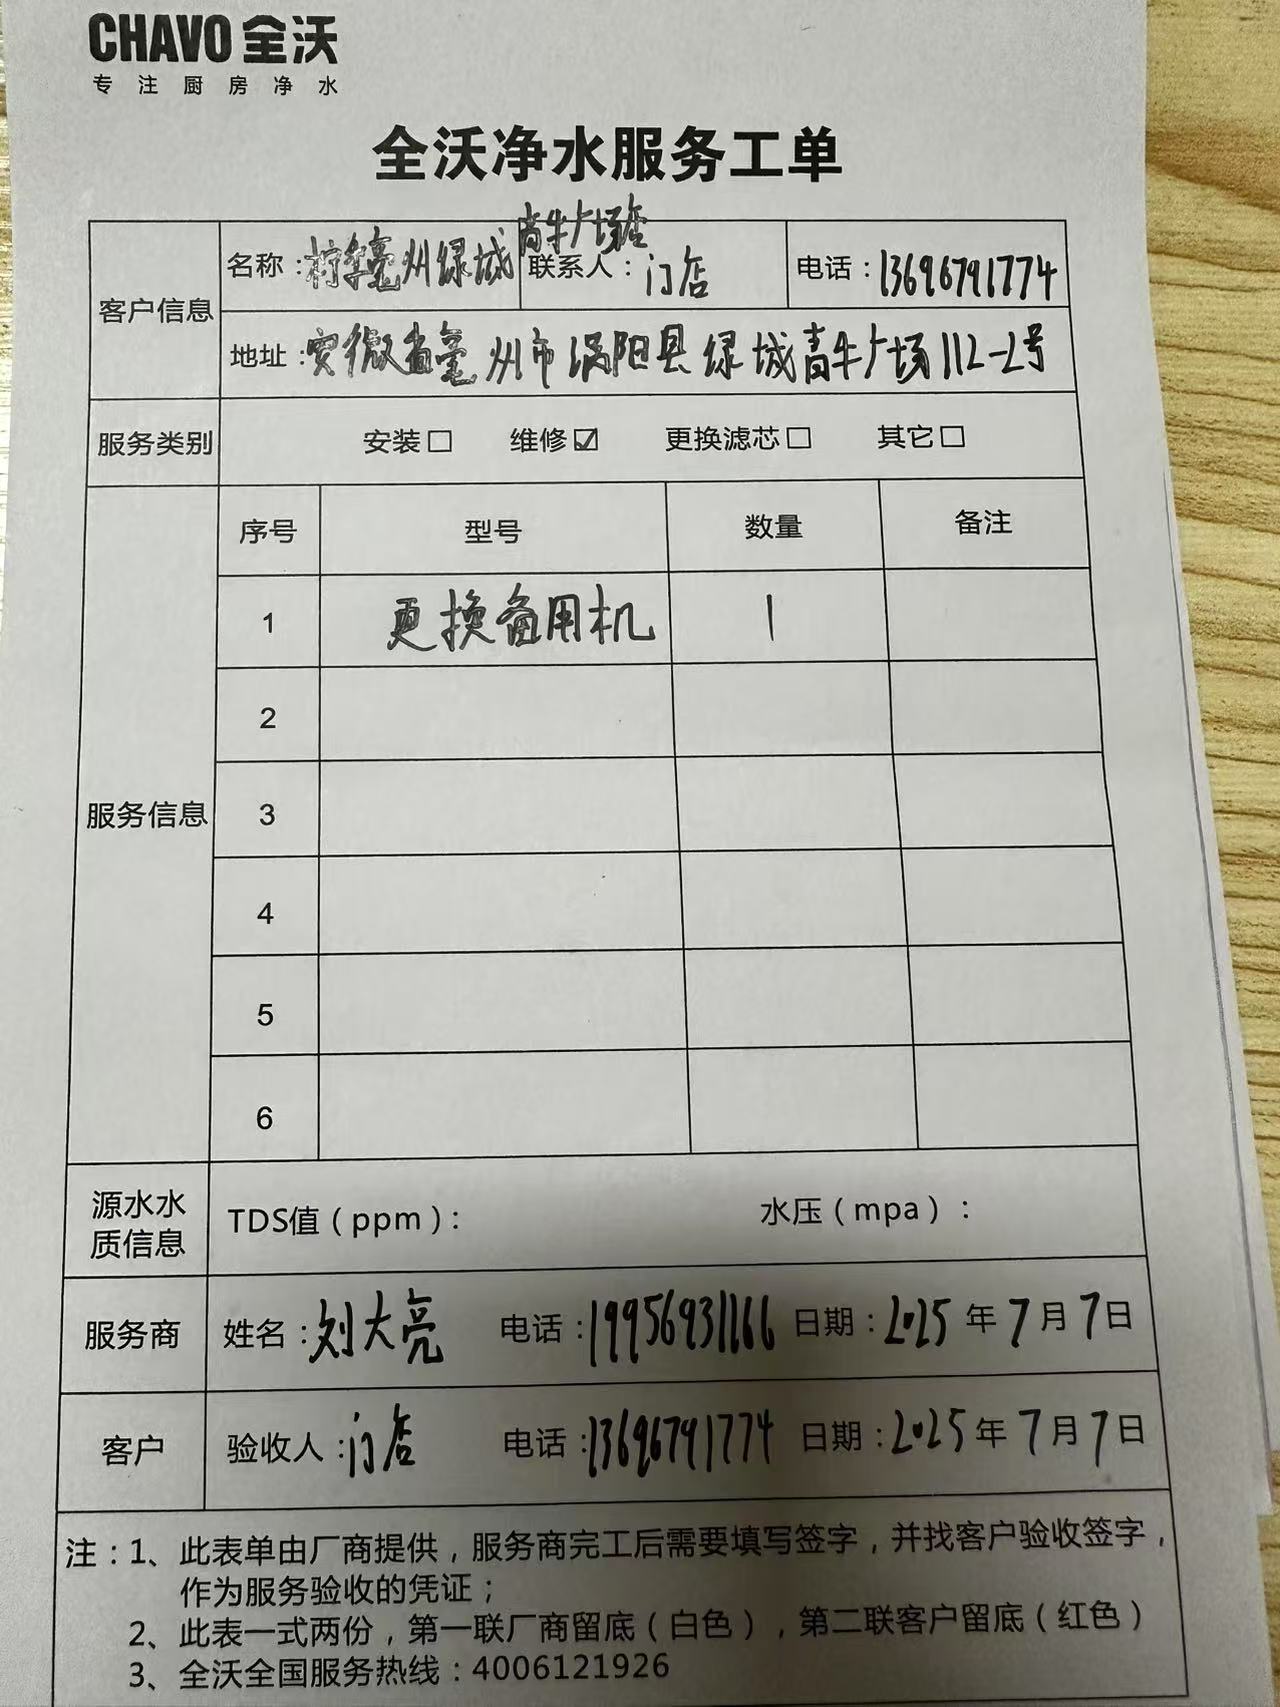 CHAVO 全沃
专注厨房净水
全沃净水服务工单
客户信息
名称：柠季亳州绿城青牛广场店
联系人：门店
电话：13696791774
地址：安徽省亳州市涡阳县绿城青牛广场112-2号
服务类别 安装□ 维修☑ 更换滤芯□ 其它□
服务信息
序号 型号 数量 备注
1 更换备用机 1
2
3
4
5
6
源水水质信息
TDS值（ppm）： 水压（mpa）：
服务商 姓名：刘大亮 电话：19956931166 日期：2025年7月7日
客户 验收人：门店 电话：13696791774 日期：2025年7月7日
注：1、此表单由厂商提供，服务商完工后需要填写签字，并找客户验收签字，
作为服务验收的凭证；
2、此表一式两份，第一联厂商留底（白色），第二联客户留底（红色）
3、全沃全国服务热线：4006121926